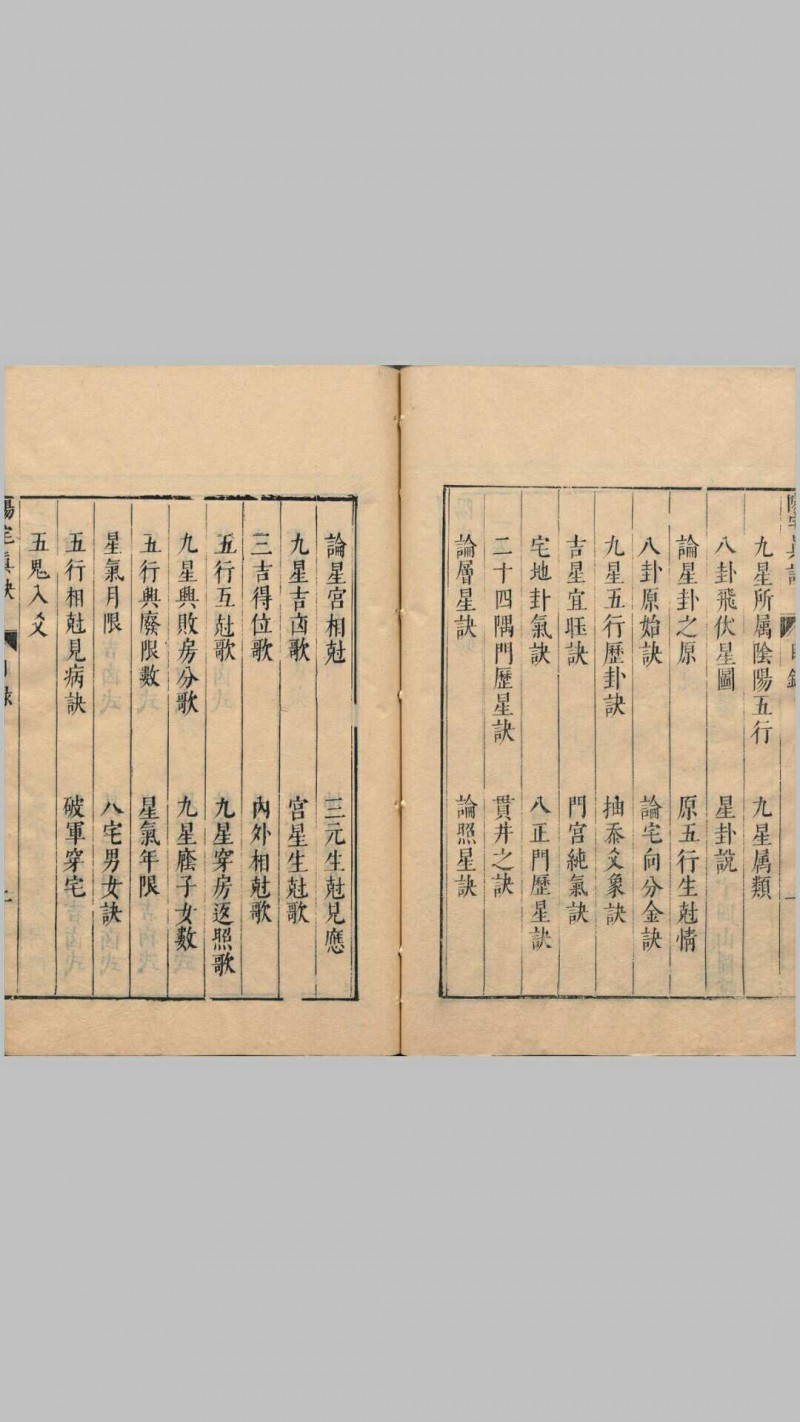 九星所属陰陽五行 九星属類
八卦飛伏星圖 星卦說
論星卦之原 原五行生尅情
八卦原始訣 論宅向分金訣
九星五行歷卦訣 抽爻象訣
吉星宜旺訣 門宮純氣訣
宅地卦氣訣 八正門歷星訣
二十四隅門歷星訣 貫井之訣
論層星訣 論照星訣
論星宮相尅 三元生尅見應
九星吉凶歌 宮星生尅歌
三吉得位歌 內外相尅歌
五行互尅歌 九星穿房返照歌
九星興敗房分歌 九星廕子女數
五行興廢限數 星氣年限
星氣月限 八宅男女訣
五行相尅見病訣 破軍穿宅
五鬼入爻
陽宅真訣 目錄 二